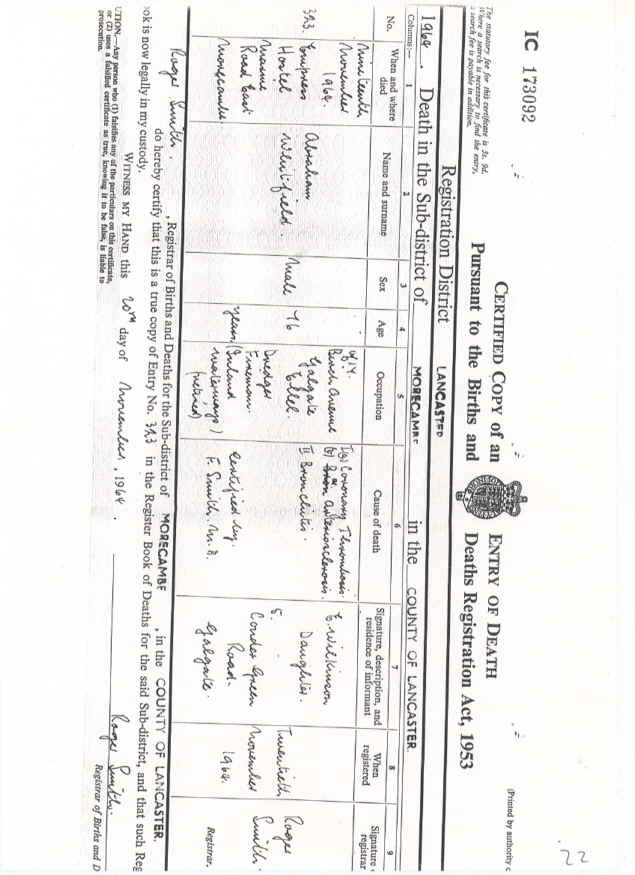 22
(Printed by authority
IC 173092
The statutory fee for this certificate is 3s. 9d.
Where a search is necessary to find the entry,
a search fee is payable in addition.
CERTIFIED COPY of an ENTRY OF DEATH
Pursuant to the Births and Deaths Registration Act, 1953
Registration District LANCASTER
1964. Death in the Sub-district of MORECAMBE in the COUNTY OF LANCASTER.
Columns:— 1 2 3 4 5 6 7 8 9
No. When and where died Name and surname Sex Age Occupation Cause of death Signature, description, and residence of informant When registered Signature registrar
323.
Nineteenth
November
1964.
Empress
Hostel
Marine
Road East
Morecambe
Abraham
Wentifield.
Male
76
years
of 14.
Beech Avenue
Galgate
Ellel.
Dredger
Fireman.
(Inland
Waterways)
(retired)
I(a) Coronary Thrombosis
(b) Arteriosclerosis.
II Bronchitis.
Certified by
F. Smith. M.B.
E. Wilkinson
Daughter.
5.
Conder Green
Road.
Galgate.
Twentieth
November
1964.
Roger
Smith.
Registrar.
Roger Smith. , Registrar of Births and Deaths for the Sub-district of MORECAMBE , in the COUNTY OF LANCASTER.
do hereby certify that this is a true copy of Entry No. 323 in the Register Book of Deaths for the said Sub-district, and that such Reg
ok is now legally in my custody.
WITNESS MY HAND this 20th day of November, 1964.
Roger Smith.
Registrar of Births and D
UTION.—Any person who (1) falsifies any of the particulars on this certificate,
or (2) uses a falsified certificate as true, knowing it to be false, is liable to
prosecution.